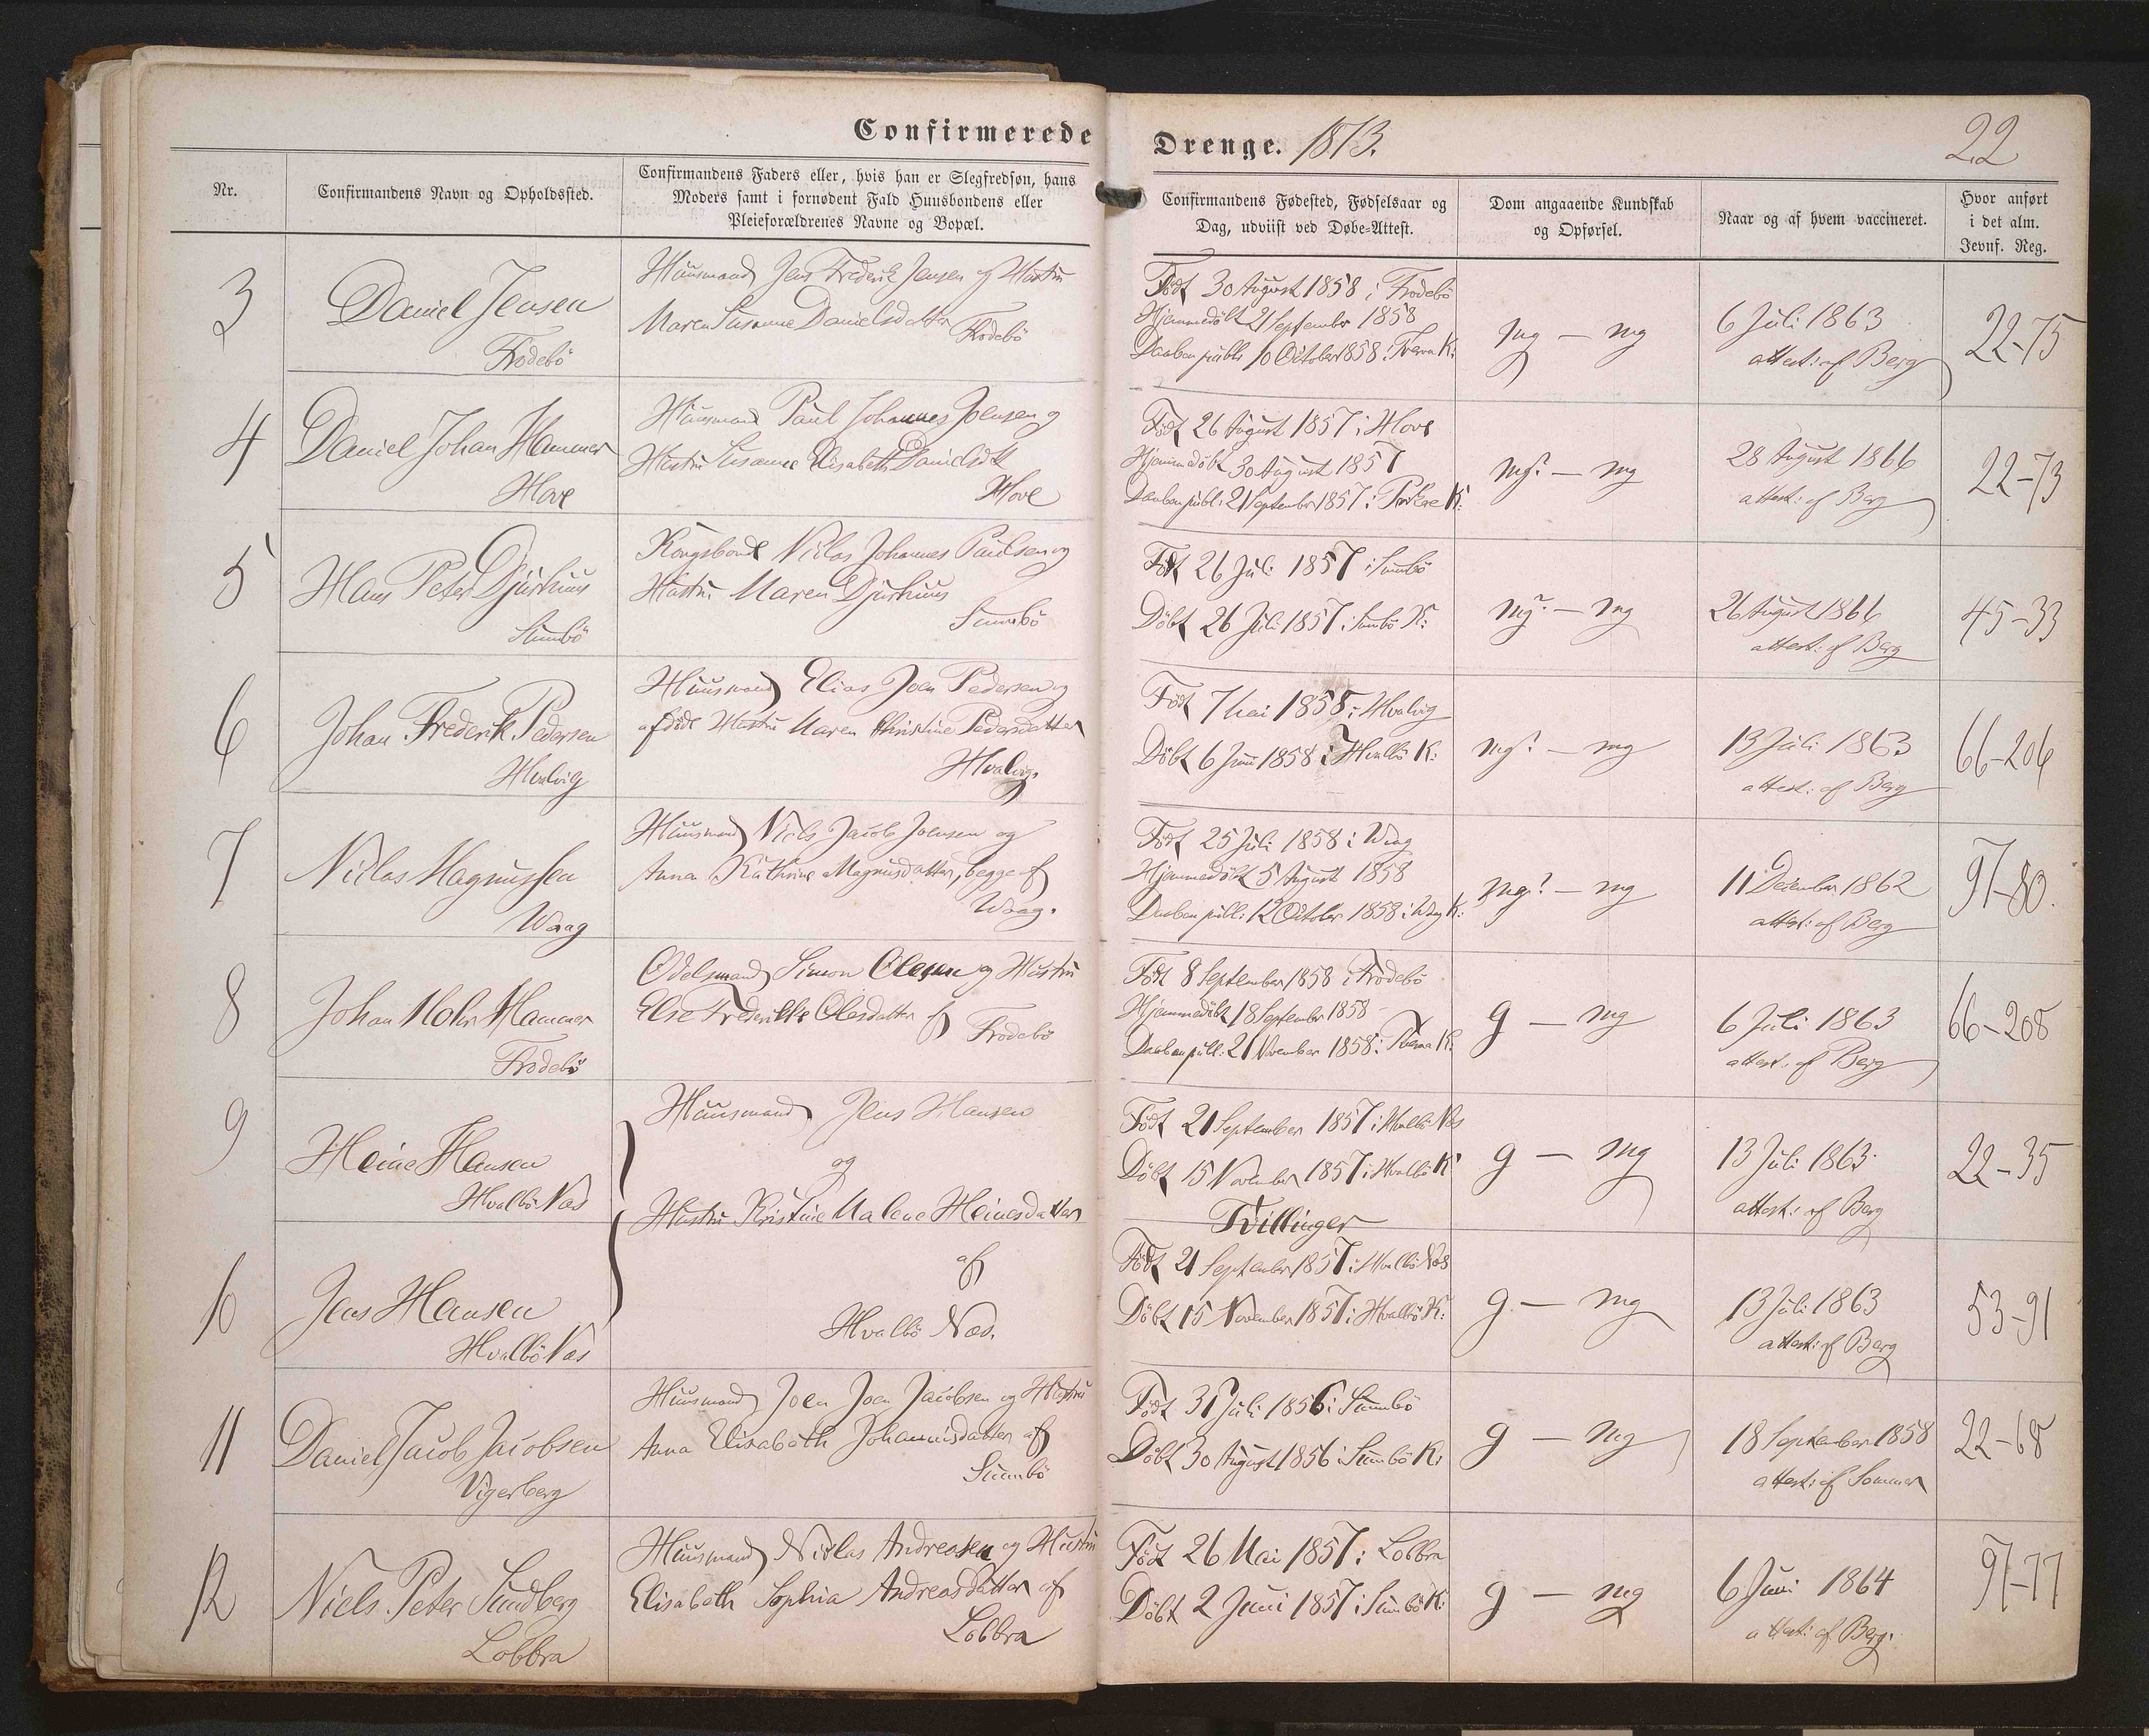 Confirmerede Drenge. 1873.
22
Nr.
Confirmandens Navn og Opholdssted.
Confirmandens Faders eller, hvis han er Slegfredsøn, hans
Moders samt i fornødent Fald Huusbondens eller
Pleieforældrenes Navne og Bopæl.
Confirmandens Fødested, Fødselsaar og
Dag, udviist ved Døbe-Attest.
Dom angaaende Kundskab
og Opførsel.
Naar og af hvem vaccineret.
Hvor anført
i det alm.
Jevnf. Reg.
3
Daniel Jensen
Frodebö
Huusmand Jens Frederik Jensen og Hustru
Maren Susanne Danielsdatter
Frodebö
Född 30 August 1858 i Frodebö
Hjemmedöbt 2 September 1858
Daaben publ: 10 October 1858 i Tveraa K:
mg — mg
6 Juli 1863
attest: af Berg
22-75
4
Daniel Johan Hammer
Hove
Huusmand Paul Johannes Joensen og
Hustru Susanne Elisabeth Danielsdtt
Hove
Födt 26 August 1857 i Hove
Hjemmedöbt 30 August 1857
Daaben publ: 21 September 1857 i Porkere K:
mg? — mg
28 August 1866
attest: af Berg
22-73
5
Hans Peter Djurhuus
Sumbö
Kongsbonde Niclas Johannes Paulsen og
Hustru Maren Djurhuus
Sumbö
Födt 26 Juli 1857 i Sumbö
Döbt 26 Juli 1857 i Sumbö K:
mg? — mg
26 August 1866
attest: af Berg
45-33
6
Johan Frederik Pedersen
Hvalvig
Huusmand Elias Joen Pedersen og
afdöde Hustru Maren Christine Pedersdatter
Hvalvig.
Födt 7 Mai 1858 i Hvalvig
Döbt 6 Juni 1858 i Hvalbö K:
mg? — mg
13 Juli 1863
attest: af Berg
66-206
7
Niclas Magnussen
Waag
Huusmand Niels Jacob Joensen og
Anna Kathrine Magnusdatter, begge af
Waag.
Födt 25 Juli 1858 i Waag
Hjemmedöbt 5 August 1858
Daaben publ: 12 October 1858 i Waag K:
mg? — mg
11 December 1862
attest: af Berg
97-80.
8
Johan Mohr Hammer
Frodebö
Odelsmand Simon Olesen og Hustru
Else Frederikke Olesdatter af
Frodebö
Födt 8 September 1858 i Frodebö
Hjemmedöbt 18 September 1858
Daaben publ: 21 November 1858 i Tveraa K:
g — mg
6 Juli 1863
attest: af Berg
66-208
9
Heine Hansen
Hvalbö Næs
Huusmand Jens Hansen
og
Hustru Kristine Malene Heinesdatter
af
Hvalbö Næs.
Födt 21 September 1857 i Hvalbö Næs
Döbt 15 November 1857 i Hvalbö K:
Tvillinger
g — mg
13 Juli 1863
attest: af Berg
22-35
10
Jens Hansen
Hvalbö Næs
Födt 21 September 1857 i Hvalbö Næs
Döbt 15 November 1857 i Hvalbö K:
g — mg
13 Juli 1863
attest: af Berg
53-91
11
Daniel Jacob Jacobsen
Vigerberg
Huusmand Joen Joen Jacobsen og Hustru
Anna Elisabeth Johannisdatter af
Sumbö
Födt 31 Juli 1856 i Sumbö
Döbt 30 August 1856 i Sumbö K:
g — mg
18 September 1858
attest: af Sommer
22-68
12
Niels Peter Sundberg
Lobbra
Huusmand Niclas Andreasen og Hustru
Elisabeth Sophia Andreasdatter af
Lobbra
Födt 26 Mai 1857 i Lobbra
Döbt 2 Juni 1857 i Sumbö K:
g — mg
6 Juni 1864
attest: af Berg.
97-77